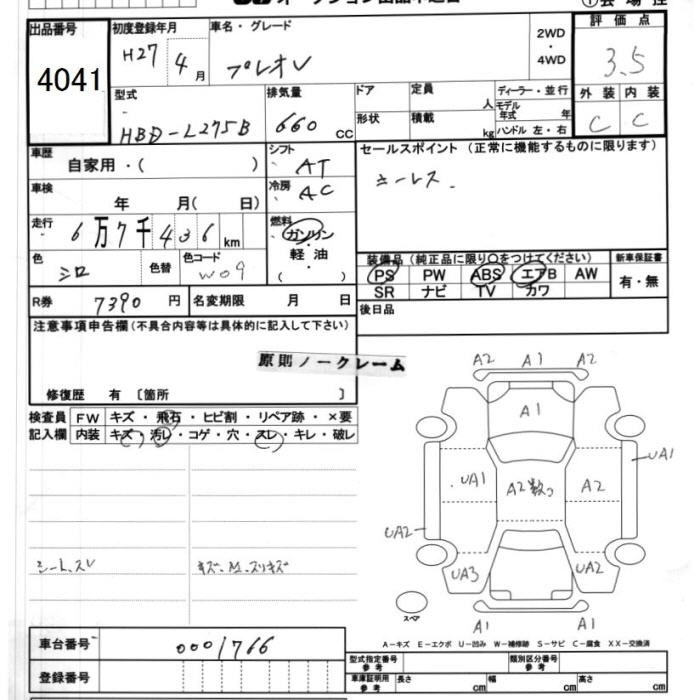 出品番号
4041
初度登録年月
H27 4月
車名・グレード
プレオV
2WD
・
4WD
評価点
3.5
外装 内装
C C
型式
HBD-L275B
排気量
660 CC
ドア
形状
定員 人
積載 kg
ディーラー・並行
モデル年式 年
ハンドル 左・右
車歴
自家用・( )
シフト
AT
セールスポイント (正常に機能するものに限ります)
キーレス
車検
年 月( 日)
冷房
AC
走行
6万7千436km
燃料
ガソリン
・
軽油
( )
色
シロ
色替
色コード
W09
装備品(純正品に限り○をつけてください)
PS PW ABS エアB AW
SR ナビ TV カワ
新車保証書
有・無
R券 7390円
名変期限 月 日
後日品
注意事項申告欄(不具合内容等は具体的に記入して下さい)
原則ノークレーム
修復歴 有 〔箇所 〕
検査員
記入欄
FW キズ・飛石・ヒビ割・リペア跡・×要
内装 キズ・汚レ・コゲ・穴・スレ・キレ・破レ
A2 A1 A2
A1
UA1
UA1 A2数つ A2
UA2
UA3 UA2
A1 A1
スペア
A-キズ E-エクボ U-凹み W-補修跡 S-サビ C-腐食 XX-交換済
車台番号
0001766
登録番号
型式指定番号
参考
類別区分番号
参考
車庫証明用
参考
長さ cm
幅 cm
高さ cm